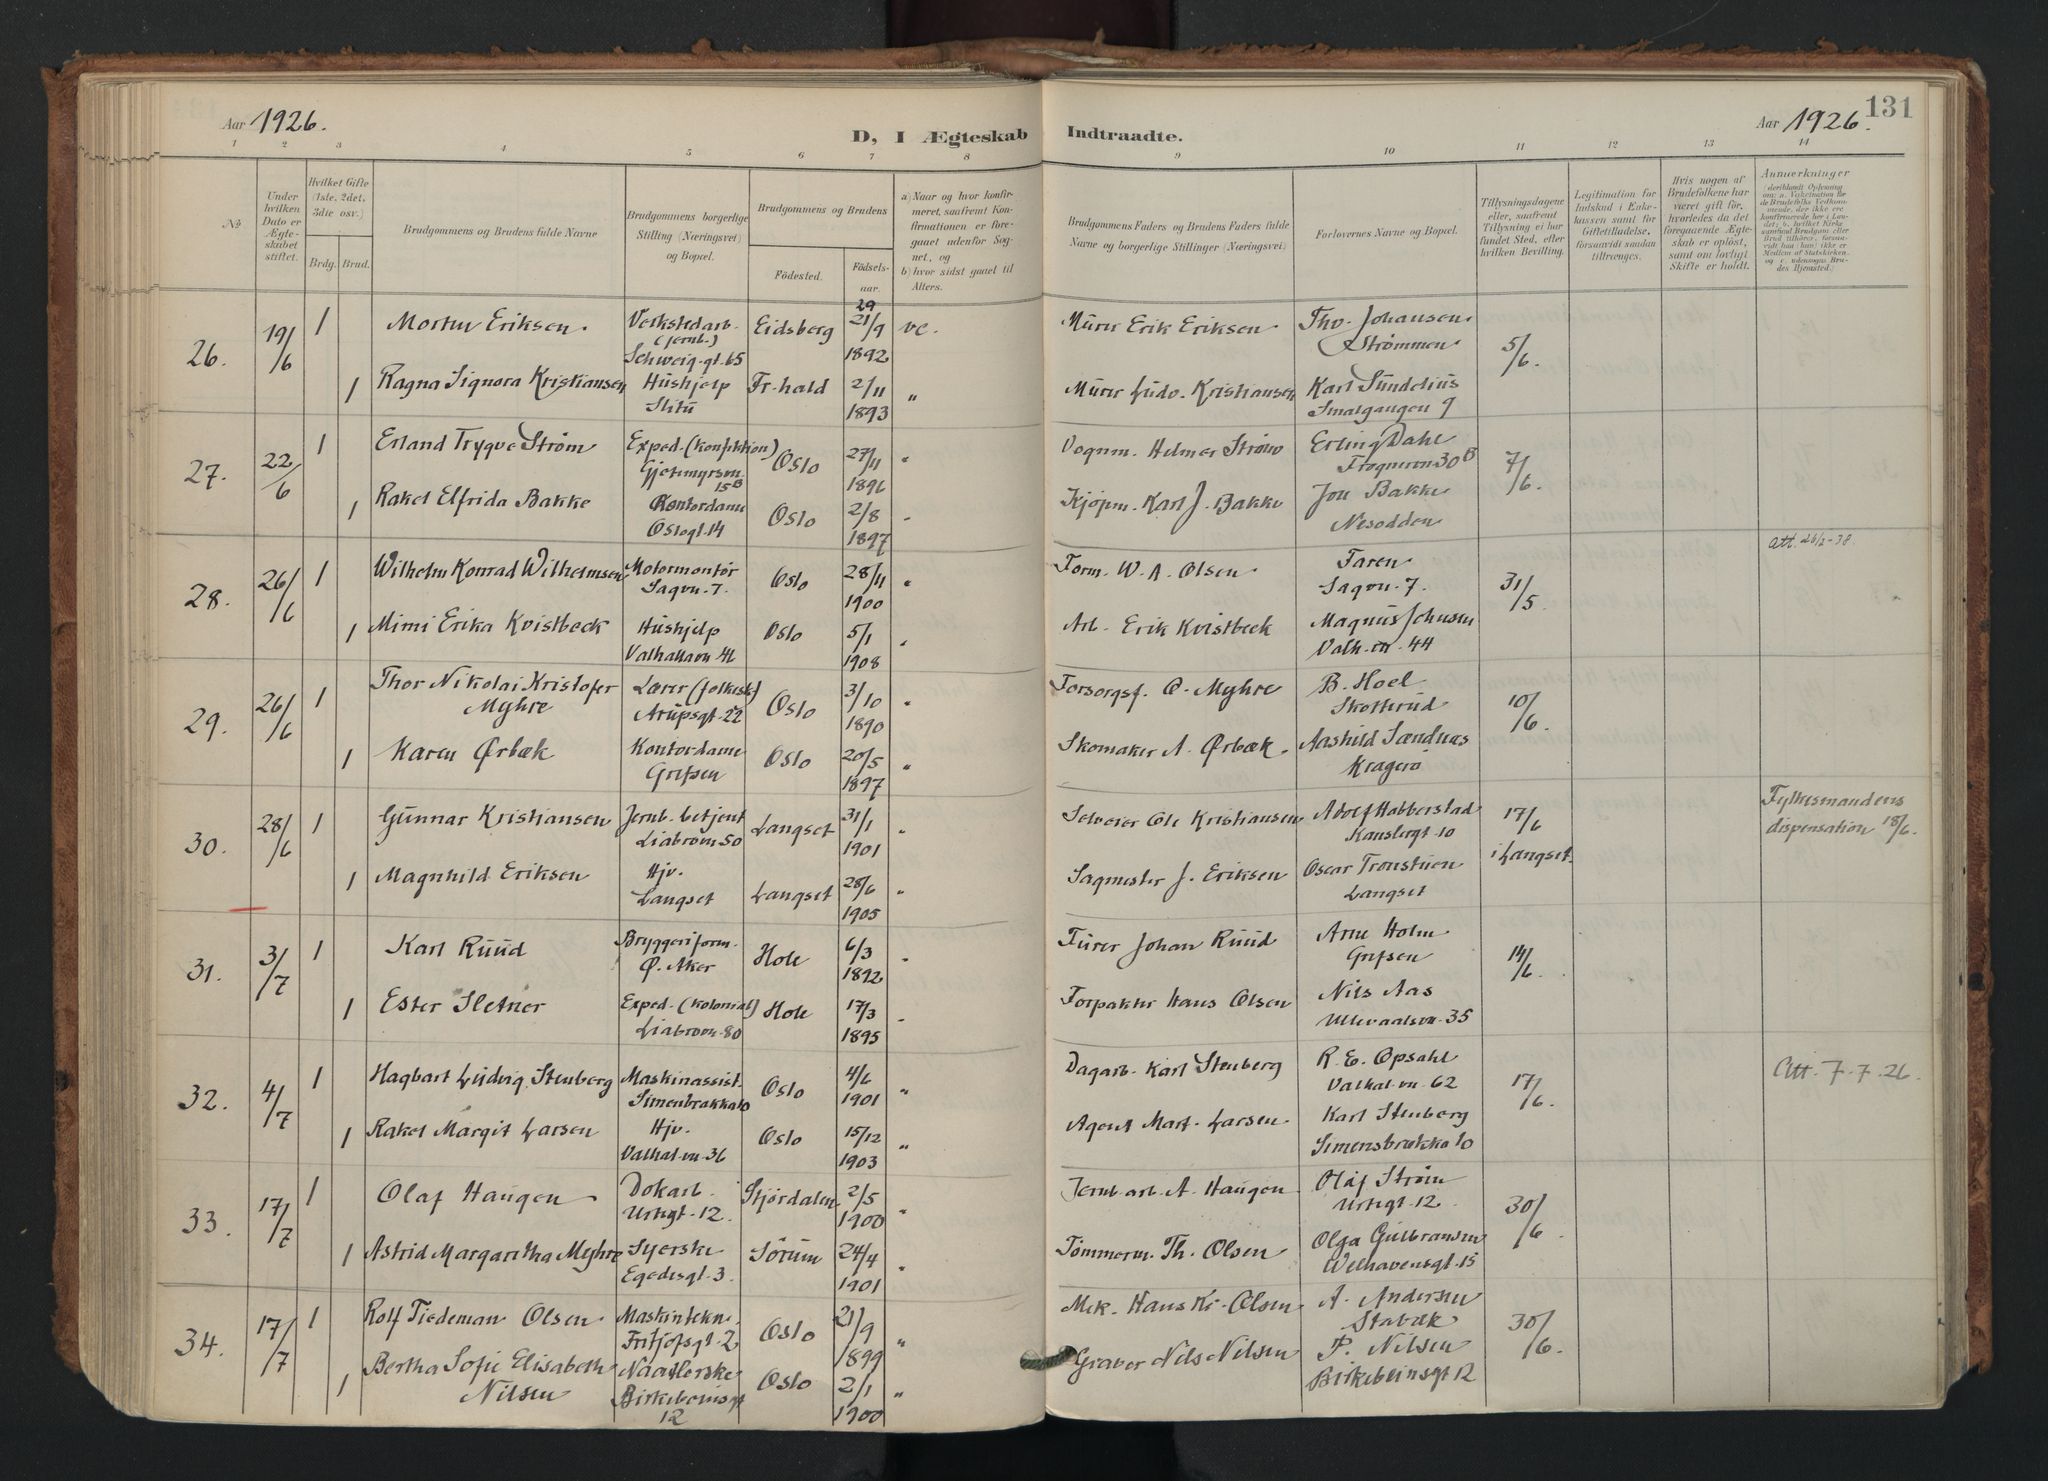 131
Aar 1926.
D, I Ægteskab
Indtraadte.
Aar 1926.
1 2 3 4 5 6 7 8
9 10 11 12 13 14
No
Under hvilken Dato er Ægteskabet stiftet.
Hvilket Gifte (1ste, 2det, 3die osv.)
Brdg. Brud.
Brudgommens og Brudens fulde Navne
Brudgommens borgerlige Stilling (Næringsvei) og Bopæl.
Brudgommens og Brudens
Födested. Födselsaar.
a) Naar og hvor konfirmeret, saafremt Konfirmationen er foregaaet udenfor Sognet, og
b) hvor sidst gaaet til Alters.
Brudgommens Faders og Brudens Faders fulde Navne og borgerlige Stillinger (Næringsvei)
Forlovernes Navne og Bopæl.
Tillysningsdagene eller, saafremt Tillysning ei har fundet Sted, efter hvilken Bevilling.
Legitimation for Indskud i Enkekassen samt for Giftetilladelse, forsaavidt saadan tiltrænges.
Hvis nogen af Brudefolkene har været gift för, hvorledes da det foregaaende Ægteskab er oplöst, samt om lovligt Skifte er holdt.
Anmærkninger
26. 19/6 1 Morten Eriksen. Verkstedarb. (jernb.) Schweig.gt. 65 Eidsberg 29 21/9 1892 vc. Murer Erik Eriksen Thv. Johansen Strømmen 5/6
1 Ragna Signora Kristiansen Hushjelp Slitu Fr.hald 2/11 1893 " Murer Ludv. Kristiansen Karl Sundelius Smalgangen 9
27. 22/6 1 Erland Trygve Strøm Exped. (konfektion) Gjetemyrsvn 15B Oslo 27/11 1896 " Vognm. Helmer Strøm Erling Dahl Frognervn 30B 7/6
1 Rakel Elfrida Bakke Kontordame Oslogt. 14 Oslo 2/8 1897 " Kjøpm. Karl J. Bakke Jon Bakke Nesodden
28. 26/6 1 Wilhelm Konrad Wilhelmsen Motormontør Sagvn. 7. Oslo 28/11 1900 " Form. W. A. Olsen Faren Sagvn. 7. 31/5. Att. 26/2-38.
1 Mimi Erika Kvistbeck Hushjelp Valhallavn 41 Oslo 5/1 1908 " Arb. Erik Kvistbeck Magnus Johnsen Valh.vn. 44
29. 26/6 1 Thor Nikolai Kristofer Myhre Lærer (folkesk.) Arupsgt. 22 Oslo 3/10 1890 " Forsorgsf. O. Myhre B. Hoel Skotterud 10/6
1 Karen Ørbæk Kontordame Grefsen Oslo 20/5 1897 " Skomaker A. Ørbæk Aashild Sandnæs Kragerø
30. 28/6 1 Gunnar Kristiansen Jernb. betjent Liabrovn 50 Langset 31/1 1901 " Selveier Ole Kristiansen Adolf Habberstad Kanslergt. 10 17/6 i Langset. Fylkesmandens dispensation 18/6.
1 Magnhild Eriksen Hjv. Langset Langset 28/6 1905 " Sagmester J. Eriksen Oscar Tronstuen Langset
31. 3/7 1 Karl Ruud Bryggeriform. Ø. Aker Hole 6/3 1892 " Furer Johan Ruud Arne Holm Grefsen 14/6.
1 Ester Sletner Exped. (kolonial) Liabrovn. 80 Hole 17/3 1895 " Forpakter Hans Olsen Nils Aas Ullevaalsvn. 35
32. 4/7 1 Hagbart Ludvig Stenberg Maskinassist. Simenbrækka 10 Oslo 4/6 1901 " Dagarb. Karl Stenberg R. E. Opsahl Valhal.vn. 62 17/6. Att. 7.7.26.
1 Rakel Margit Larsen Hjv. Valhal.vn. 36 Oslo 15/12 1903 " Agent Mart. Larsen. Karl Stenberg Simensbrækka 10
33. 17/7 1 Olaf Haugen Dokarb. Urtegt. 12. Stjørdalen 2/5 1900 " Jernb. arb. A. Haugen Olaf Strøm Urtegt. 12. 30/6
1 Astrid Margaretha Myhre Syerske Egedesgt. 3. Sørum 24/4 1901 " Tømmerm. Th. Olsen Olga Gulbransen Welhavensgt. 15
34. 17/7 1 Rolf Tiedeman Olsen Maskintekn. Fritjofsgt. 2 Oslo 21/9 1899 " Mek. Hans Kr. Olsen A. Andersen Stabæk 30/6.
1 Bertha Sofie Elisabeth Nilsen Naadlerske Birkebeinsgt 12 Oslo 2/1 1900 " Graver Nils Nilsen P. Nilsen Birkebeinsgt 12